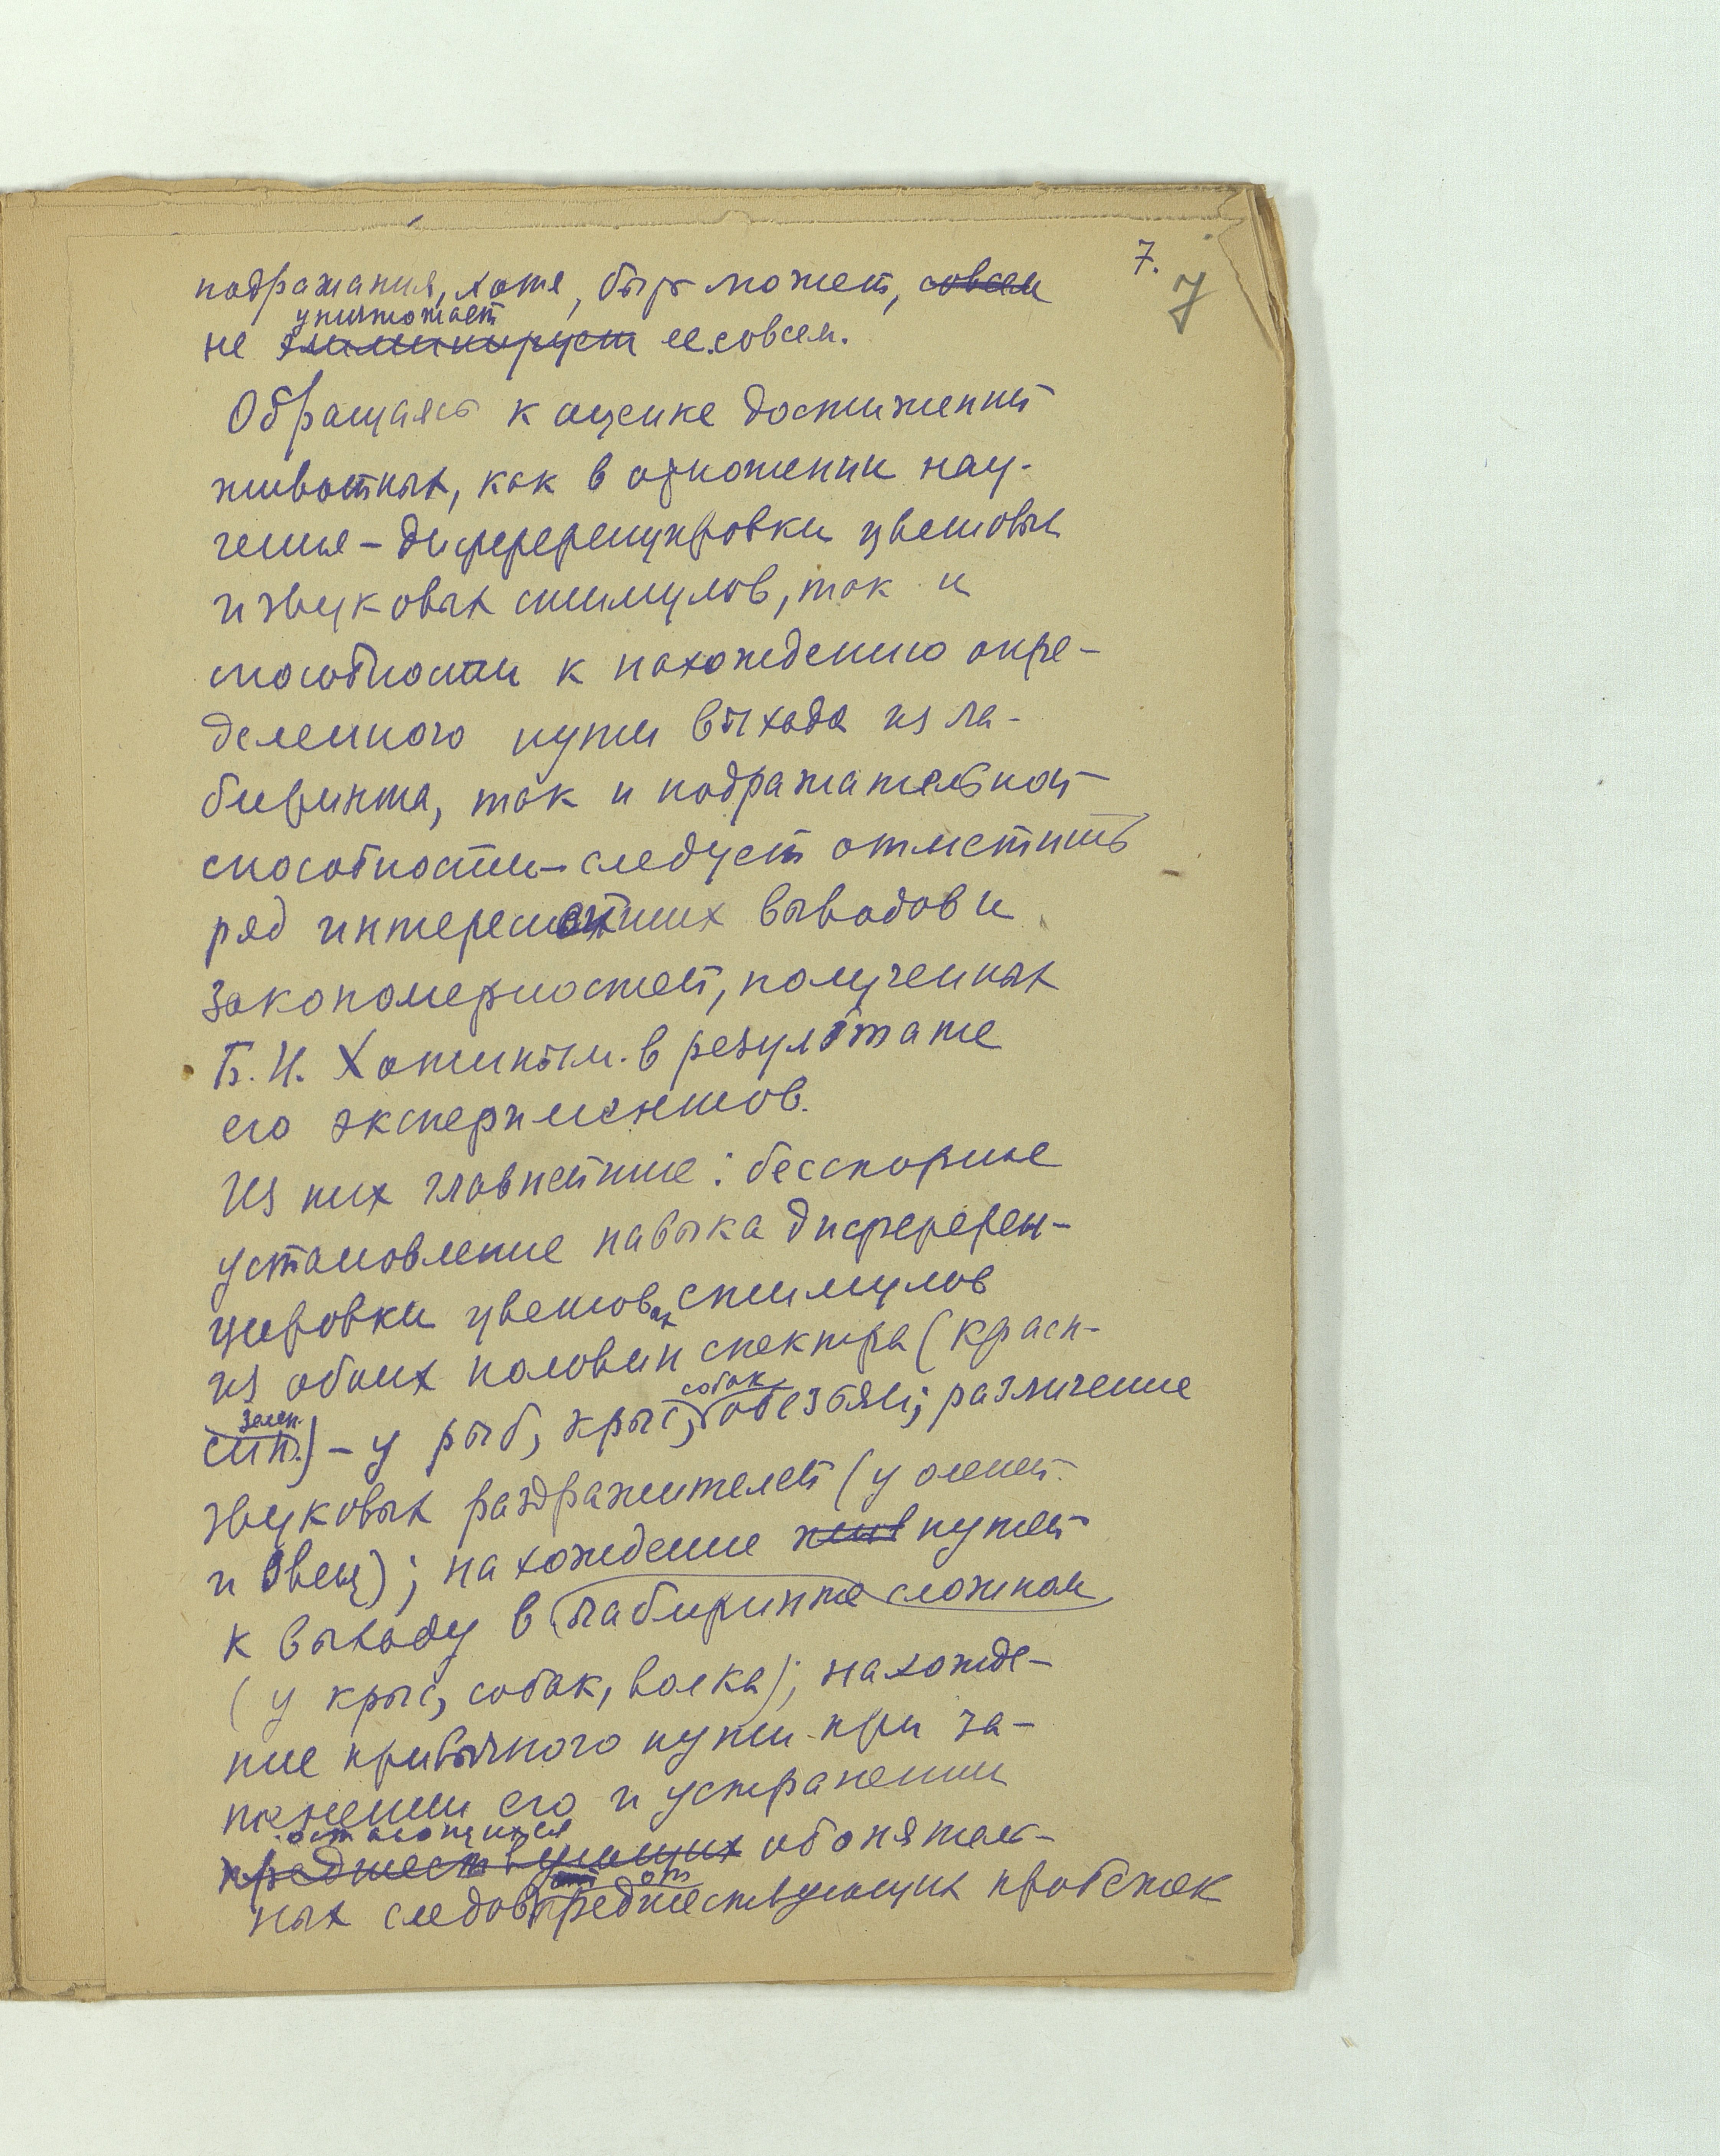 7.
7
подражания, хотя, быть может, совсем
уничтожает
не элиминирует ее совсем.
Обращаясь к оценке достижений
животных, как в отношении нау-
чения – дифференцировки цветовых
и звуковых стимулов, так и
способности к нахождению опре-
деленного пути выхода из ла-
биринта, так и подражательной
способности – следует отметить
ряд интереснейших выводов и
закономерностей, полученных
Б.И. Хотиным в результате
его экспериментов.
Из них главнейшие: бесспорные
установление навыка дифферен-
цировки цветовых стимулов
из обоих половин спектра (красн-
зелен. собак,
син.) – у рыб, крыс, обезьян; различение
звуковых раздражителей (у оленей
и овец); нахождение жив путей
к выходу в лабиринте сложном
(у крыс, собак, волка); нахожде-
ние привычного пути при за-
пенении его и устранении
остающихся
предшествующих обонятель-
от
ных следов предшествующих пробежек